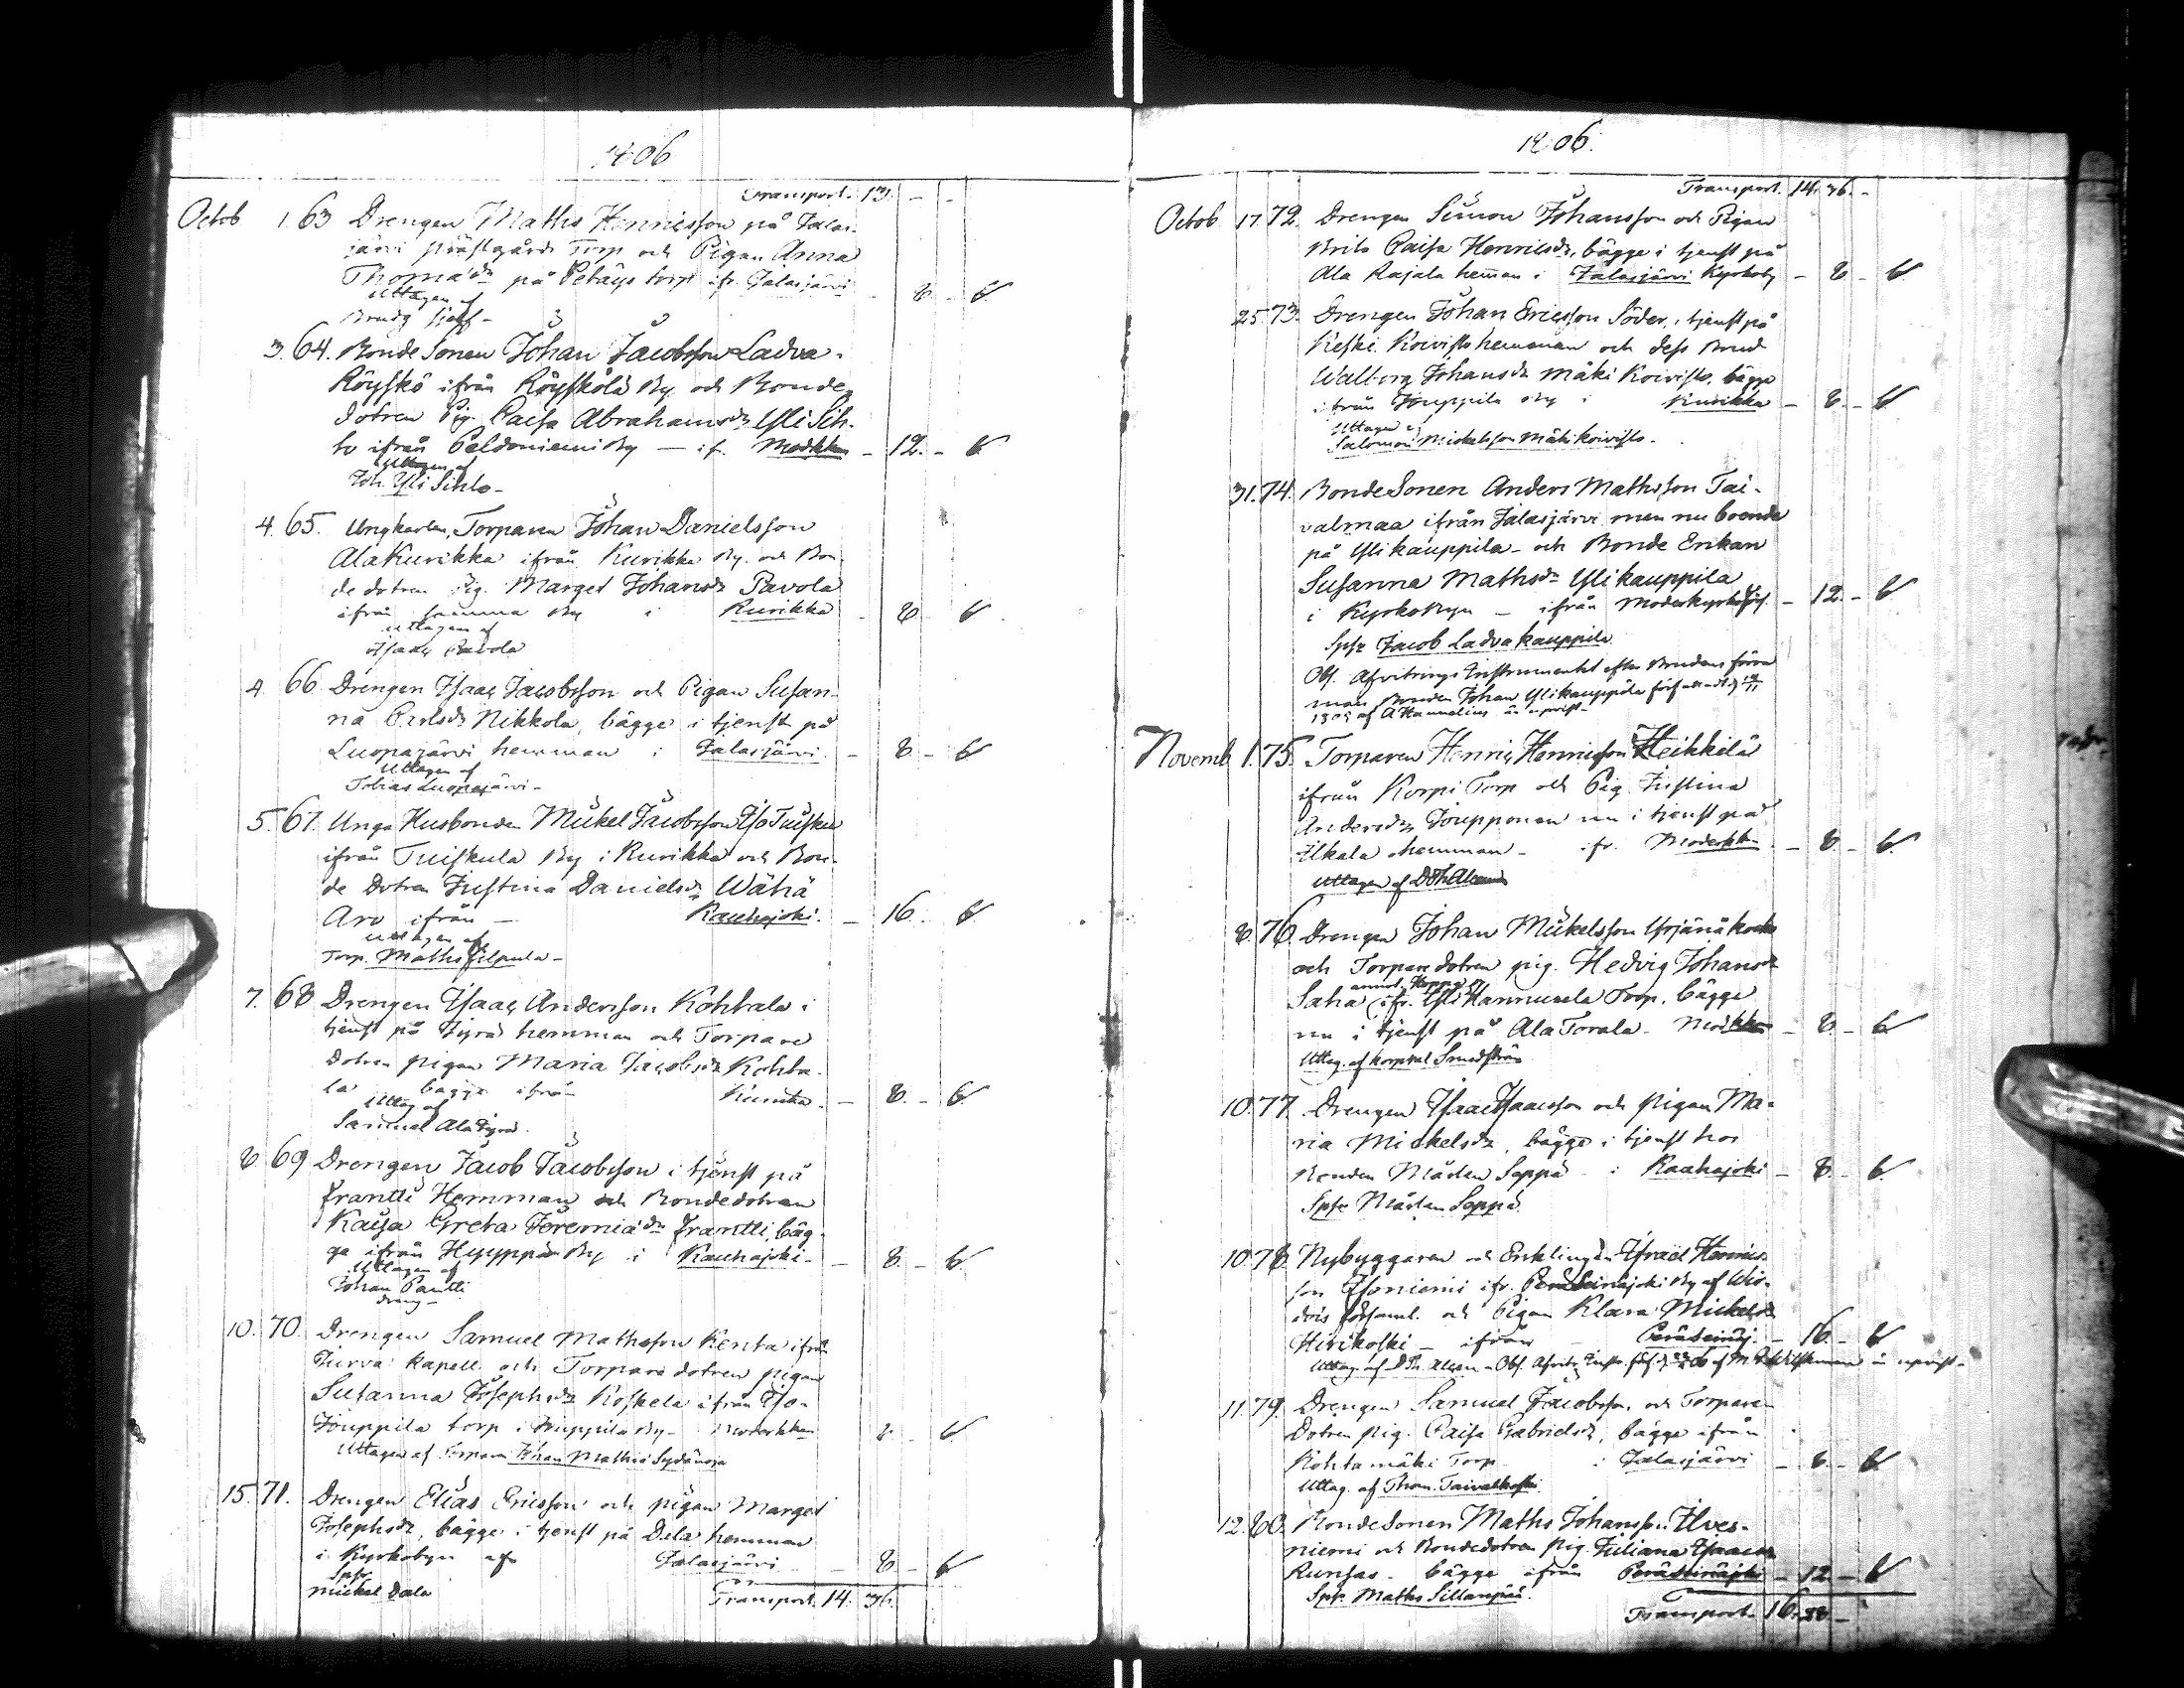 1806
Transport. 13. - -
Octob 1. 63 Drengen Maths Henricsson på Jalas-
järvi prästgårds Torp och Pigan Anna
Thomasdr på Petäys torp ifr. Jalasjärvi - 8 -
Uttagen af
Brudg sjelf -
3. 64. Bonde Sonen Johan Jacobsson Ladva-
Röyskö ifrån Röysköla By och Bonde
dotren Pig. Caisa Abrahamsdr Yli Sih-
to ifrån Peldoniemi By - if. Moderkkn - 12. -
Uttagen af
Joh. Yli Sihto -
4. 65. Ungkarlen, Torparen Johan Danielsson
Ala Kurikka ifrån Kurikka By. och Bon-
de dotren Pig. Marget Johansdr Pavola
ifrån samma By i Kurikka - 8
uttagen af
Isaac Pavola
4. 66 Drengen Isaac Jacobsson och Pigan Susan-
na Carlsdr Nikkola, bägge i tjenst på
Luopajärvi hemman i Jalasjärvi - 8 -
Uttagen af
Tobias Luopajärvi -
5. 67. Unga Husbonden Mickel Jacobsson Iso Tuisku
ifrån Tuiskula By i Kurikka och Bon-
de Dotren Justina Danielsdr Wähä
Aro ifrån - Kauhajoki. - 16.
Uttagen af
Torp. Maths Filpula -
7. 68 Drengen Isaac Andersson Kohtala i
tjenst på Jyrä hemman och Torpare
Dotren pigan Maria Jacobsdr Kohta-
la bägge ifrån Kurikka. - 8. -
Uttag af
Samuel Ala Jyrä.
8 69 Drengen Jacob Jacobsson i tjenst på
Frantti Hemman och Bondedotren
Kaisa Greta Jeremiædr Frantti, bäg-
ge ifrån Hyyppä By i Kauhajoki - 8. -
Uttagen af
Johan Pantti
dreng -
10. 70. Drengen Samuel Mathsson Kenta ifrån
Jurva kapell och Torpare dotren pigan
Susanna Josephsdr Koskela ifrån Iso-
Jouppila torp i Jouppila By - Moderkkan 8 -
Uttagen af Torparen Johan Mathss Sydänoja
15. 71. Drengen Elias Ericsson och pigan Marget
Josephsdr, bägge i tjenst på Dala hemman
i Kyrkobyn af Jalasjärvi - 8 -
Spr.
Mickel Dala
Transport. 14. 36.
1806.
Transport. 14. 36. -
Octob. 17. 72. Drengen Simon Johansson och Pigan
Brita Caisa Henricsdr, bägge i tjenst på
Ala Rajala heman i Jalasjärvi Kyrkoby - 8 -
25. 73. Drengen Johan Ericsson Söder, i tjenst på
Keski Koivisto hemman och dess Brud
Walborg Johansdr Mäki Koivisto, bägge
ifrån Jouppila By i Kurikka - 8. -
Uttagen af
Salomon Mickelsson Mäki Koivisto -
31. 74. Bonde Sonen Anders Mathsson Tai-
valmaa ifrån Jalasjärvi men nu boende
på Ylikauppila - och Bonde Enkan
Susanna Mathsdr Ylikauppila
i KyrkoByn - ifrån Moderkyrko - 12. -
Spr Jacob Ladvakauppila
Obs. Afvitrings Instrumentet efter Brudens förra
man Bonden Johan Ylikauppila
af A Hannelius är uprist -
Novemb. 1. 75. Torparen Henric Henricsson Heikkilä
ifrån Korpi Torp och Pig. Justina
Andersdr Joupponen nu i tjenst på
Ilkala hemman - ifr. Moderkk - 8. -
Uttagen af
8. 76. Drengen Johan Mickelsson Yrjänäkoski
och Torpare dotren pig. Hedvig Johansdr
Saha ifr. Yli Hannuxela Torp, bägge
nu i tjenst på Ala Torala - Moderkkn - 8. -
Uttag. af korpral Sundström
10. 77. Drengen Isaac Isaacsson och pigan Ma-
ria Mickelsdr, bägge i tjenst hos
Bonden Mårten Seppä - i Kauhajoki - 8. -
Spr Mårten Seppä
10. 78. Nybyggaren och Enklingen Israel Henrics-
son Isoniemi ifr. Peräseinäjoki By af Wir-
dois församl. och Pigan Klara Mickelsdr
Hirikoski - ifrån - Peräseinäj. - 16. -
11. 79. Drengen Samuel Jacobsson och Torpare-
Dotren pig. Caisa Gabrielsdr, bägge ifrån
Kohtamäki Torp i Jalasjärvi - 8. -
Uttag. af Thom. Taivalkoski
12. 80. Bonde Sonen Maths Johansson Ilves-
niemi och Bondedotren Pig. Juliana Isaacsdr
Runsas - bägge ifrån Peräseinäjoki - 12 -
Spr Maths Sillanpää.
Transport. 16. 28. -